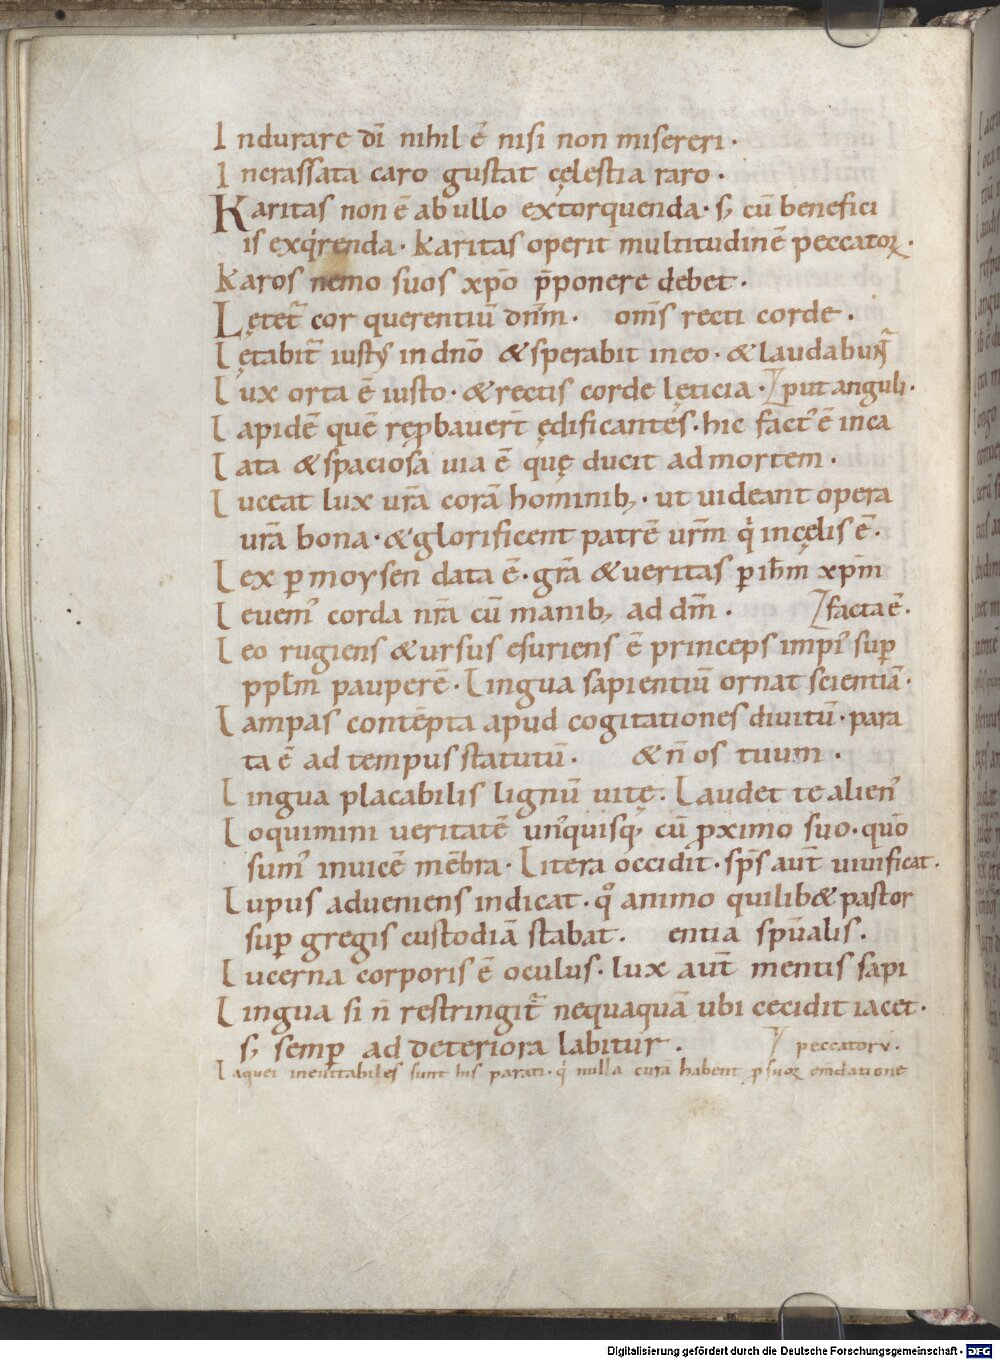 Indurare dī nihil ē nisi non misereri.
Incrassata caro gustat cęlestia raro.
Karitas non ē ab ullo extorquenda. s; cū benefici
is exqrenda. Karitas operit multitudinē peccatoꝝ.
Karos nemo suos xpō p̄ponere debet.
Lętet̄ cor querentiū dn̄m. om̄s recti corde.
Lętabit̄ iustꝰ in dn̄o & sperabit in eo. & laudabunt̄
Lux orta ē iusto. & rectis corde lęticia. ł put anguli.
Lapidē quē rep̱bauer̄t ędificantes. hic factꝰ ē in ca
Lata & spaciosa uia ē quę ducit ad mortem.
Luceat lux ur̄a corā hominib; . ut uideant opera
ur̄a bona. & glorificent patrē ur̄m q̇ in cęlis ē.
Lex p̱ moysen data ē. gr̄a & ueritas p̱ ih̄m xp̄m
Leuemꝰ corda nr̄a cū manib; ad dm̄. facta ē.
Leo rugiens & ursus esuriens ē princeps impiꝰ sup̱
ppl̄m pauperē. Lingua sapientiū ornat scientiā.
Lampas contēpta apud cogitationes diuitū. para
ta ē ad tempus statutū. & n̄ os tuum.
Lingua placabilis lignū uitę. Laudet te alienꝰ
Loquimini ueritatē unꝰquisq; cū ꝓximo suo. quō
sumꝰ inuicē mēbra. Litera occidit. sp̄s aut̄ uiuificat.
Lupus adueniens indicat. qͦ animo quilib& pastor
sup̱ gregis custodiā stabat. entia sp̄ualis.
Lucerna corporis ē oculus. lux aut̄ mentis sapi
Lingua si n̄ restringit̄ nequaquā ubi cecidit iacet.
s; semp̱ ad deteriora labitur. peccatorū.
Laquei ineuitabiles sunt his parati. q̇ nulla curā habent ꝓ suoꝝ em̄datione
Digitalisierung gefördert durch die Deutsche Forschungsgemeinschaft - DFG